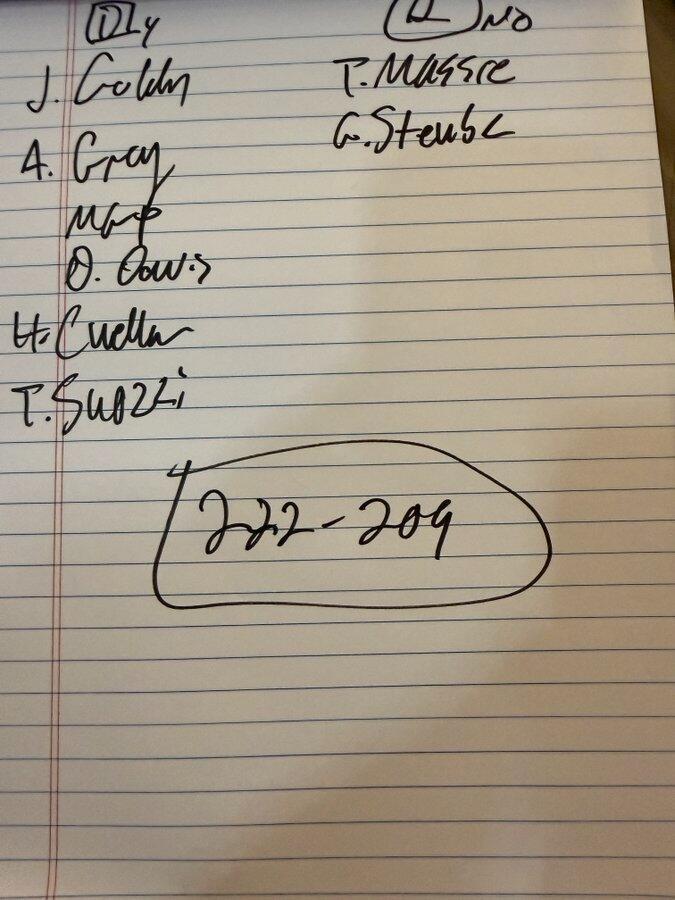 D Y
J. Goldn
A. Gray
MGP
D. Davis
H. Cuellar
T. Suozzi
R NO
T. Massie
G. Steube
222-209